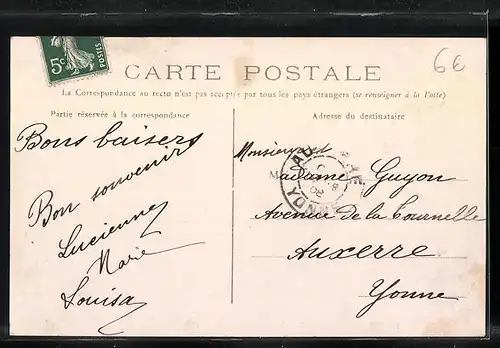 5c POSTES
6€
CARTE POSTALE
La Correspondance au recto n'est pas acceptée par tous les pays étrangers (se renseigner à la Poste)
Partie réservée à la correspondance
Adresse du destinataire
Bons baisers
Bon souvenir
Lucienne
Marie
Louisa
Madame Guyon
Avenue de la Tournelle
Auxerre
Yonne
YONNE